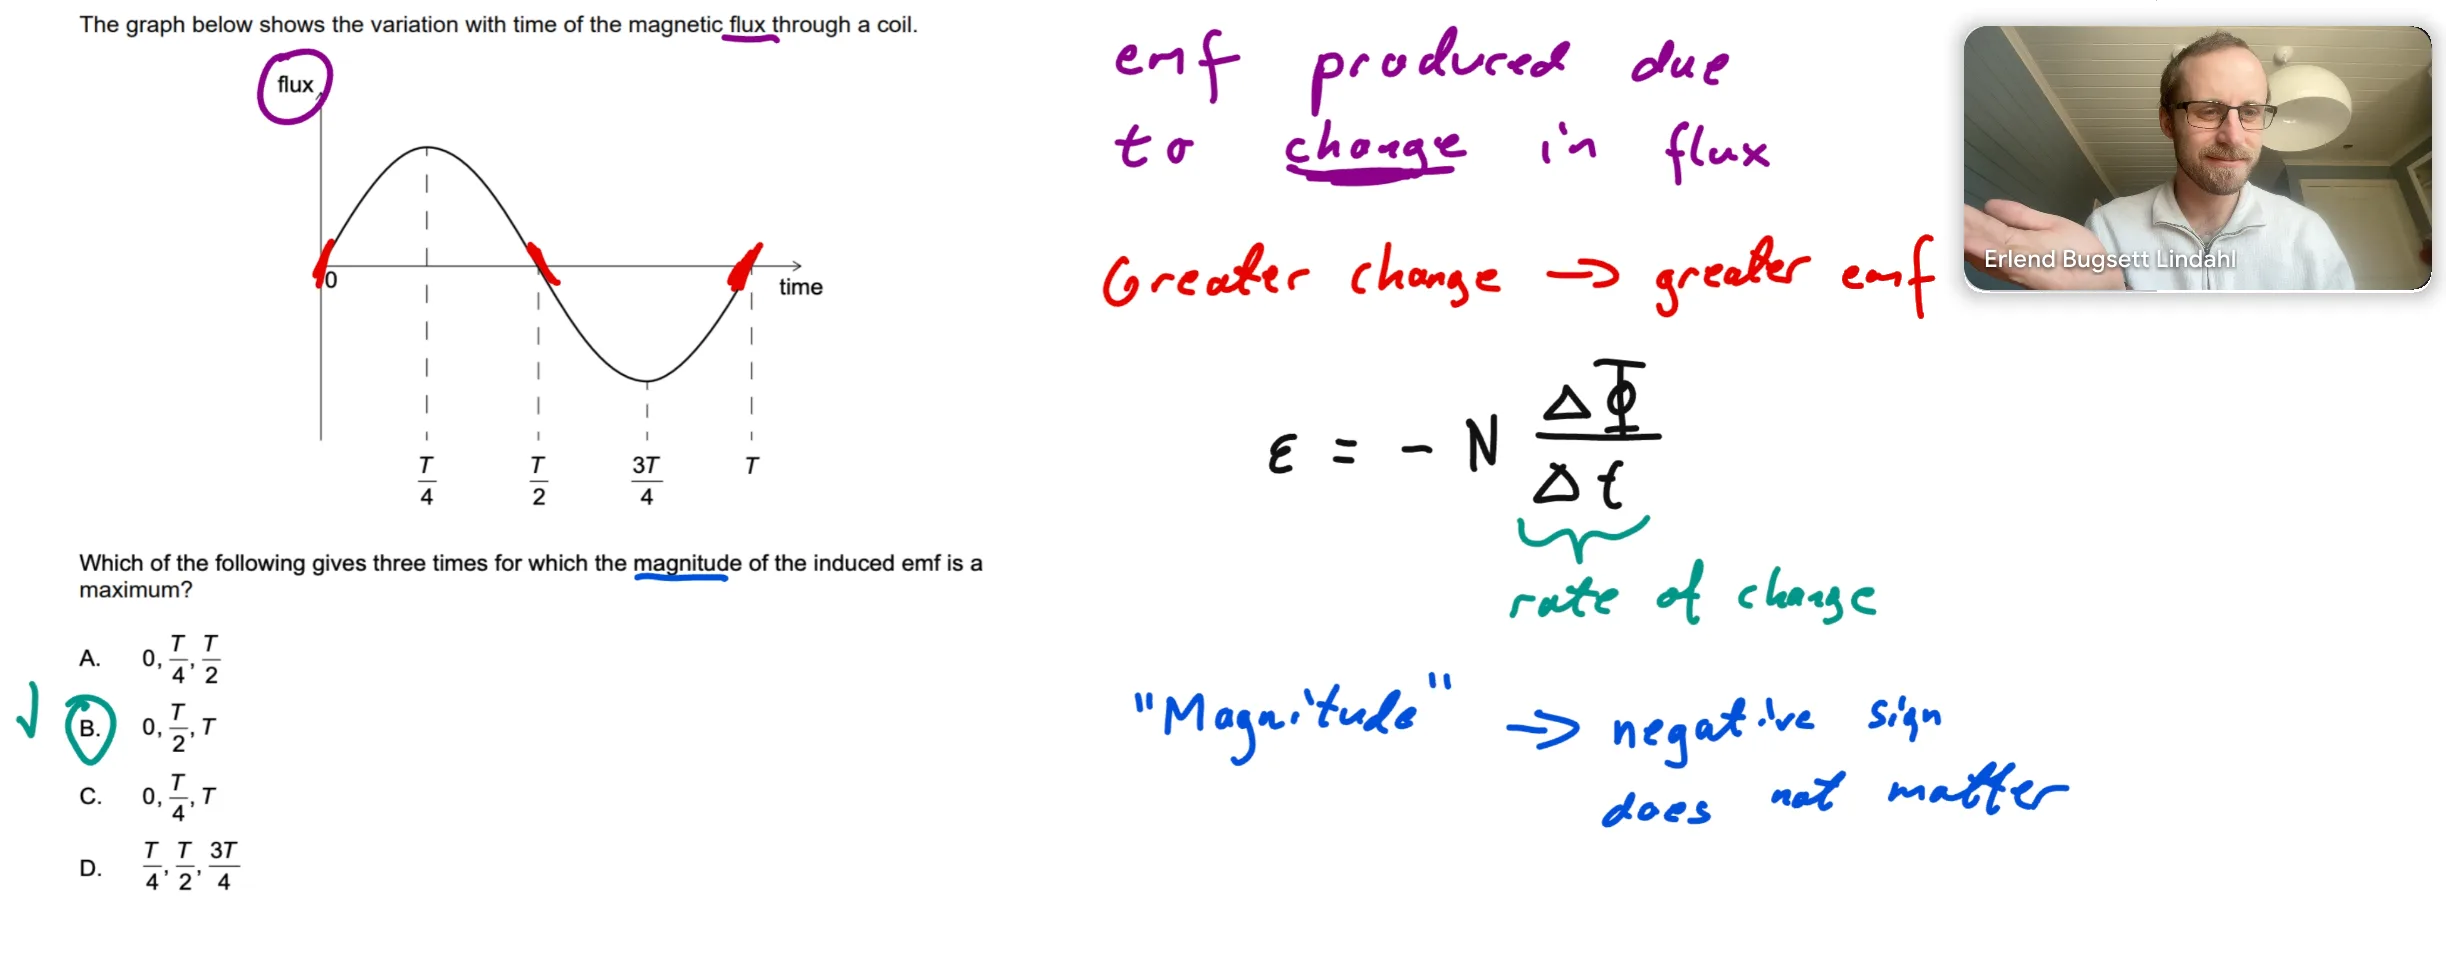 The graph below shows the variation with time of the magnetic flux through a coil.
flux
0
time
T/4 T/2 3T/4 T
Which of the following gives three times for which the magnitude of the induced emf is a
maximum?
A. 0, T/4, T/2
B. 0, T/2, T
C. 0, T/4, T
D. T/4, T/2, 3T/4
emf produced due
to change in flux
Greater change → greater emf
ε = - N ΔΦ/Δt
rate of change
"Magnitude" → negative sign
does not matter
Erlend Bugsett Lindahl